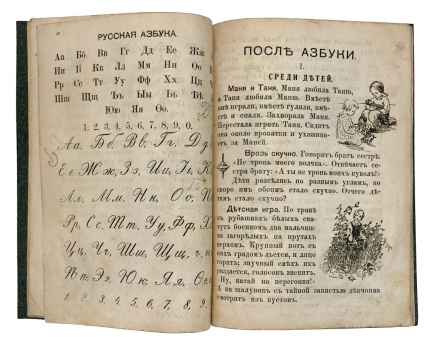 РУССКАЯ АЗБУКА.
Аа Бб Вв Гг Дд Ее Жж
Зз Ии Іі Кк Лл Мм Нн Оо Пп
Рр Сс Тт Уу Фф Хх Цц Чч
Шш Щщ Ъъ Ыы Ьь Ѣѣ Ээ
Юю Яя Ѳѳ.
1, 2, 3, 4, 5, 6, 7, 8, 9, 0.
Аа, Бб, Вв, Гг, Дд
Ее, Жж, Зз, Ии, Іі, Кк
Лл, Мм, Нн, Оо, Пп
Рр, Сс, Тт, Уу, Фф, Хх
Цц, Чч, Шш, Щщ, ъ, ы
Ѣѣ, Ээ, Юю, Яя, Ѳѳ
1, 2, 3, 4, 5, 6, 7, 8, 9,
ПОСЛѢ АЗБУКИ.
I.
СРЕДИ ДѢТЕЙ.
Маня и Таня. Маня любила Таню,
а Таня любила Маню. Вмѣстѣ
онѣ играли, вмѣстѣ гуляли, вмѣ-
стѣ и спали. Захворала Маня.
Перестала играть Таня. Сидитъ
она около кроватки и ухажива-
етъ за Маней.
Врозь скучно. Говоритъ братъ сестрѣ:
«Не тронь моего волчка». Отвѣчаетъ се-
стра брату: «А ты не тронь моихъ куколъ!»
Дѣти разсѣлись по разнымъ угламъ, но
скоре имъ обоимъ стало скучно. Отчего дѣ-
тямъ стало скучно?
Дѣтская игра. По травѣ
въ рубашкахъ бѣлыхъ ска-
чутъ босикомъ два мальчиш-
ки загорѣлыхъ на прутахъ
верхомъ. Крупный потъ съ
нихъ градомъ льется, и лицо
горитъ; звучный смѣхъ ихъ
раздается, голосокъ звенитъ.
Ну, катай на перегонки!»
А на шалуновъ съ тайной завистью дѣвчонка
смотритъ изъ кустовъ.